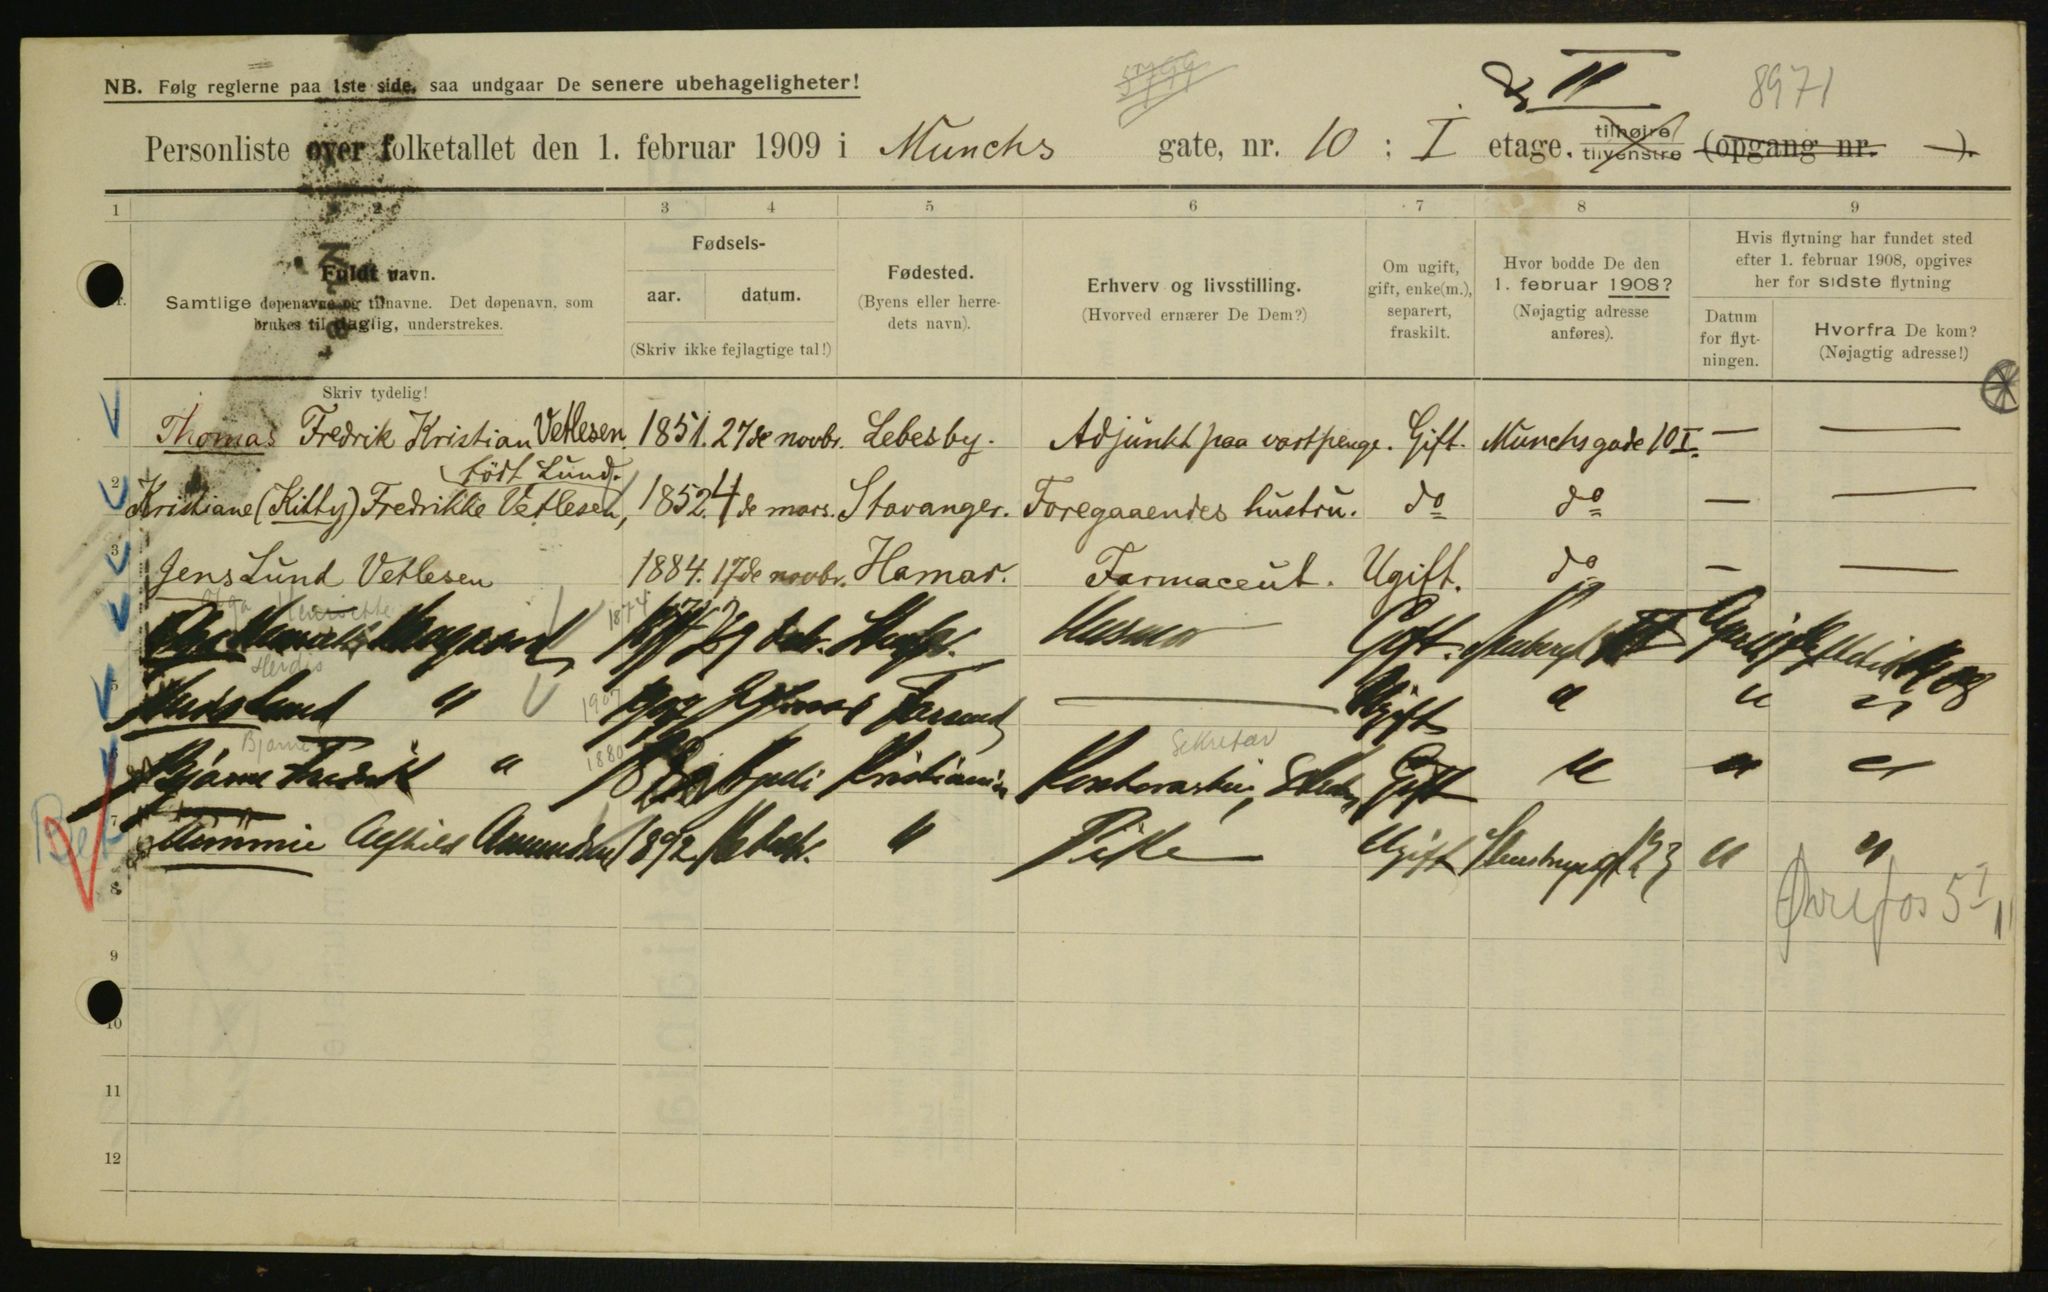 NB. Følg reglerne paa 1ste side, saa undgaar De senere ubehageligheter!
& II 8971
Personliste over folketallet den 1. februar 1909 i Munchs gate, nr. 10 ; I etage, tilhøire/tilvenstre (opgang nr. ).
1 2 3 4 5 6 7 8 9
Fulde navn.
Samtlige døpenavne og tilnavne. Det døpenavn, som
brukes til daglig, understrekes.
Skriv tydelig!
Fødsels-
aar. datum.
(Skriv ikke fejlagtige tal!)
Fødested.
(Byens eller herre-
dets navn).
Erhverv og livsstilling.
(Hvorved ernærer De Dem?)
Om ugift,
gift, enke(m.),
separert,
fraskilt.
Hvor bodde De den
1. februar 1908?
(Nøjagtig adresse
anføres).
Hvis flytning har fundet sted
efter 1. februar 1908, opgives
her for sidste flytning
Datum
for flyt-
ningen.
Hvorfra De kom?
(Nøjagtig adresse!)
1 Thomas Fredrik Kristian Vetlesen 1851. 27de novbr. Lebesby. Adjunkt paa vartpenge. Gift. Munchsgade 10 I. — —
født Lund.
2 Kristiane (Kitty) Fredrikke Vetlesen, 1852. 4de mars. Stavanger. Foregaaendes hustru. do do — —
3 Jens Lund Vetlesen 1884. 17de novbr. Hamar. Farmaceut. Ugift. do — —
Olga Henriette 1874
Husmor Gift.
Herdis
5 Lund " 1907 Farsund — Ugift " " "
Bjarne 1880 Sekretær
6 Bjarne Fredrik " juli Kristiania Gift " " "
7 Alfhild Amundsen 1892 " Pike Ugift " "
8
9
10
11
12